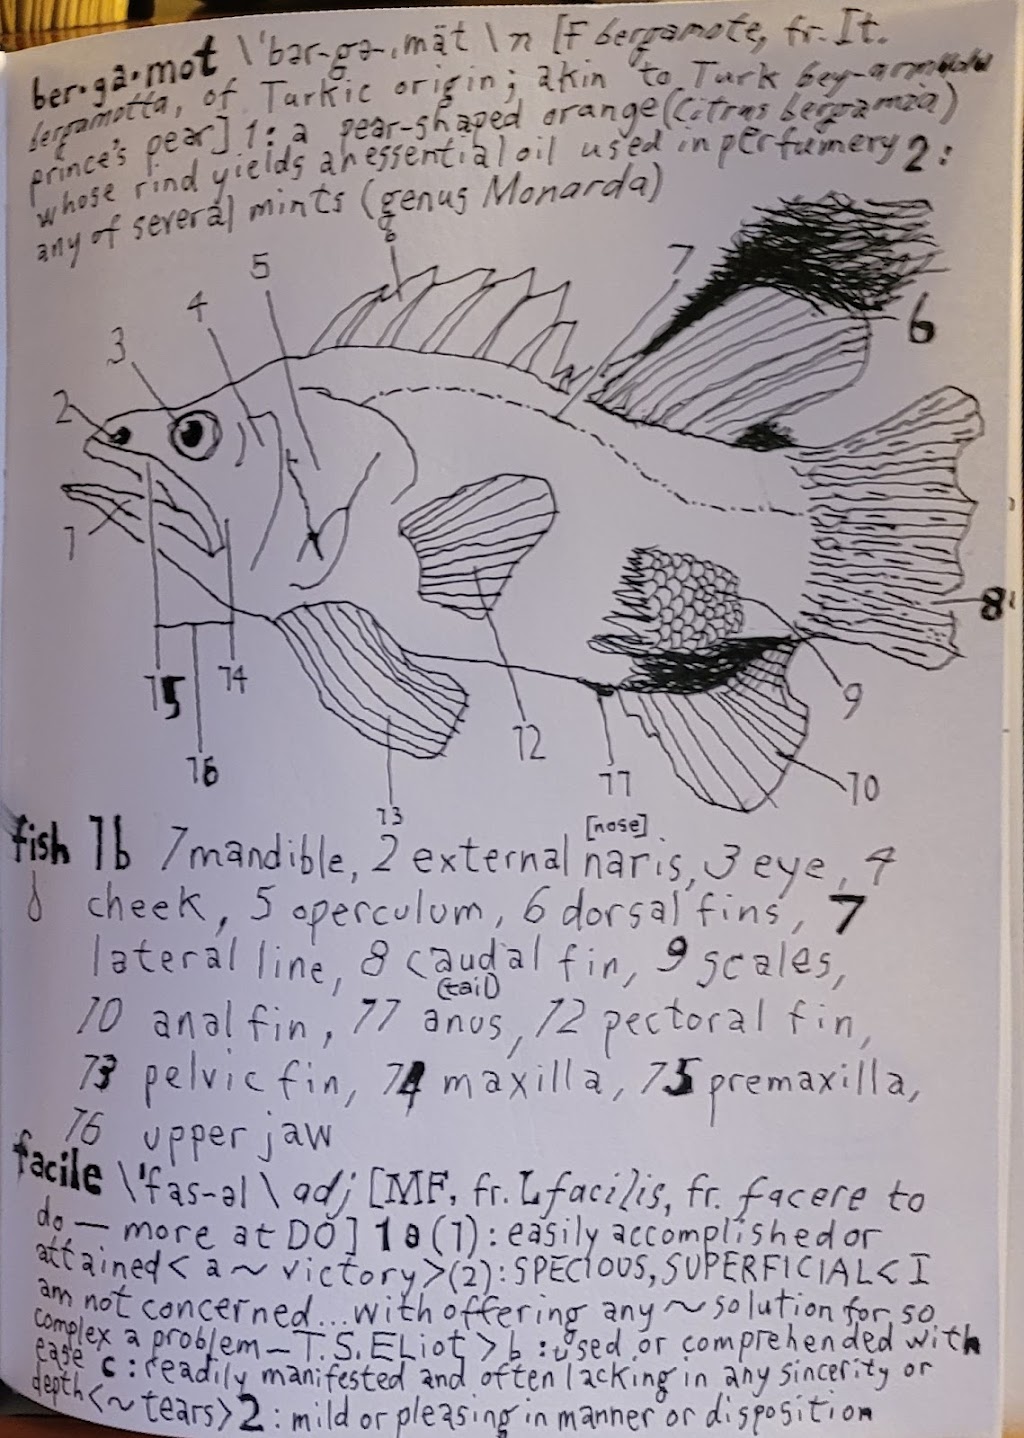 ber·ga·mot \'bər-gə-ˌmät \ n [F bergamote, fr. It.
bergamotta, of Turkic origin; akin to Turk bey-armudu
prince's pear] 1: a pear-shaped orange (Citrus bergamia)
whose rind yields an essential oil used in perfumery 2:
any of several mints (genus Monarda)
6
5
7
4
6
3
2
1
8
15
14
9
12
16
11
10
13
[nose]
fish 1b 1 mandible, 2 external naris, 3 eye, 4
cheek, 5 operculum, 6 dorsal fins, 7
lateral line, 8 caudal fin, 9 scales,
(tail)
10 anal fin, 11 anus, 12 pectoral fin,
13 pelvic fin, 14 maxilla, 15 premaxilla,
16 upper jaw
facile \'fas-əl \ adj [MF, fr. L facilis, fr. facere to
do — more at DO] 1 a (1): easily accomplished or
attained < a ~ victory > (2): SPECIOUS, SUPERFICIAL < I
am not concerned... with offering any ~ solution for so
complex a problem — T.S. ELiot > b : used or comprehended with
ease c : readily manifested and often lacking in any sincerity or
depth < ~ tears > 2 : mild or pleasing in manner or disposition